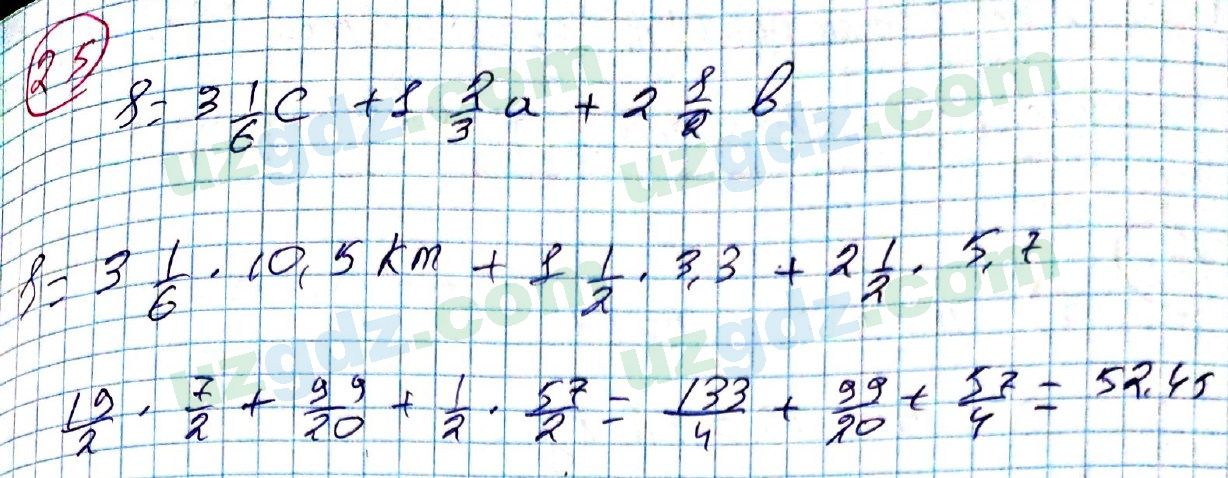 25
S = 3 1/6 c + 1 1/3 a + 2 1/2 b
S = 3 1/6 · 10,5 km + 1 1/2 · 3,3 + 2 1/2 · 5,7
19/2 · 7/2 + 99/20 + 1/2 · 57/2 = 133/4 + 99/20 + 57/4 = 52,45
uzgdz.com uzgdz.com
uzgdz.com uzgdz.com